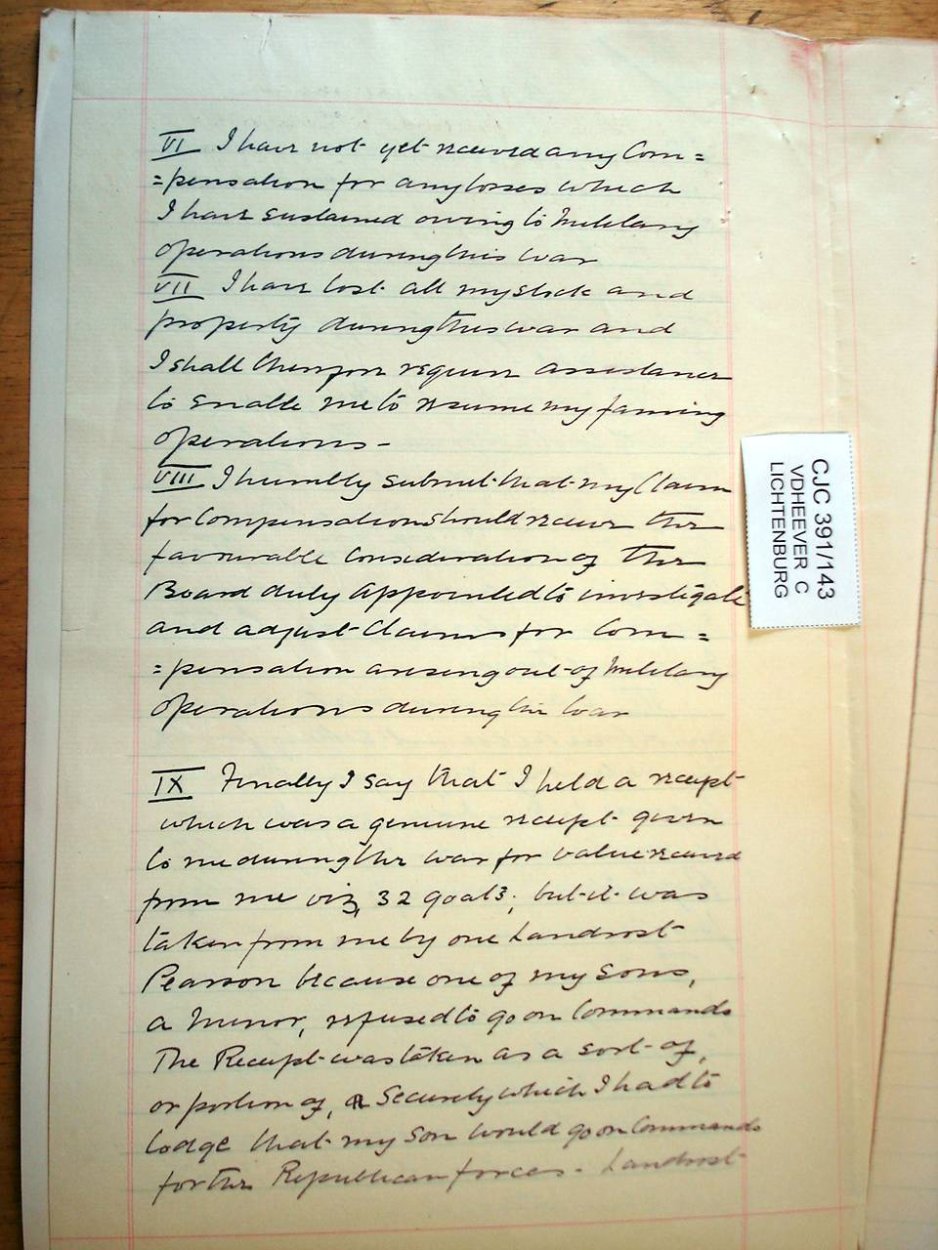 VI I have not yet received any Com=
=pensation for any losses which
I have sustained owing to Military
operations during this war
VII I have lost all my stock and
property during this war and
I shall therefore require assistance
to enable me to resume my farming
operations -
VIII I humbly submit that my Claim
for Compensation should receive the
favourable Consideration of the
Board duly appointed to investigate
and adjust Claims for Com=
=pensation arising out of Military
operations during the War
IX Finally I say that I held a receipt
which was a genuine receipt given
to me during the war for value received
from me viz, 32 goats; but it was
taken from me by one Landrost
Pearson because one of my Sons,
a Minor, refused to go on Commando
The Receipt was taken as a sort of,
or portion of, a Security which I had to
lodge that my Son would go on Commando
for the Republican forces - Landrost
CJC 391/143
VDHEEVER C
LICHTENBURG